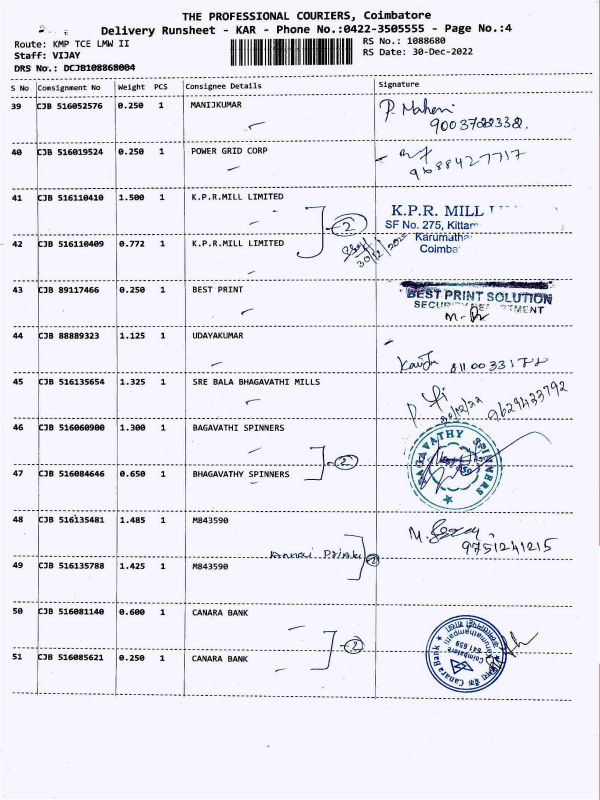 THE PROFESSIONAL COURIERS, Coimbatore
Delivery Runsheet - KAR - Phone No.:0422-3505555 - Page No.:4
Route: KMP TCE LMW II RS No.: 1088680
Staff: VIJAY RS Date: 30-Dec-2022
DRS No.: DCJB108868004
S No Consignment No Weight PCS Consignee Details Signature
39 CJB 516052576 0.250 1 MANIJKUMAR
40 CJB 516019524 0.250 1 POWER GRID CORP
9688427717
41 CJB 516110410 1.500 1 K.P.R.MILL LIMITED K.P.R. MILL
2 SF No. 275, Kittam
42 CJB 516110409 0.772 1 K.P.R.MILL LIMITED Karumatha
30/12/2022 Coimba
43 CJB 89117466 0.250 1 BEST PRINT BEST PRINT SOLUTION
SECURITY DEPARTMENT
44 CJB 88889323 1.125 1 UDAYAKUMAR
45 CJB 516135654 1.325 1 SRE BALA BHAGAVATHI MILLS
30/12/22 9629433792
46 CJB 516060900 1.300 1 BAGAVATHI SPINNERS
2 BAGAVATHY SPINNERS
47 CJB 516084646 0.650 1 BHAGAVATHY SPINNERS
48 CJB 516135481 1.485 1 M843590
9751241215
2
49 CJB 516135788 1.425 1 M843590
50 CJB 516081140 0.600 1 CANARA BANK
2
51 CJB 516085621 0.250 1 CANARA BANK
Canara Bank
Coimbatore